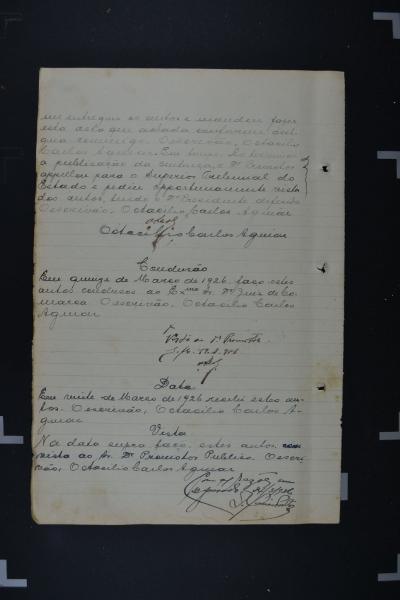 me entregou os autos e mandou fazer
este auto que achado conforme assi-
gna commigo. O escrivão, Octacilio
Carlos Aguiar. Em tempo.
a publicação da sentença, o Dr Promotor
appellou para o Superior Tribunal do
Estado e pediu opportunamente vista
dos autos, tendo o Dr Presidente deferido
O escrivão, Octacilio Carlos Aguiar
Octacilio Carlos Aguiar
Conclusão
Em quinze de Março de 1926, faço estes
autos conclusos ao Exmo Sr. Dr Juiz de Co-
marca O escrivão, Octacilio Carlos
Aguiar
Vista ao Dr Promotor.
Data
Em vinte de Março de 1926 recebi estes au-
tos. O escrivão, Octacilio Carlos A-
guiar
Vista
Na data supra faço estes autos com
vista ao Sr. Dr Promotor Publico. O escri-
vão, Octacilio Carlos Aguiar